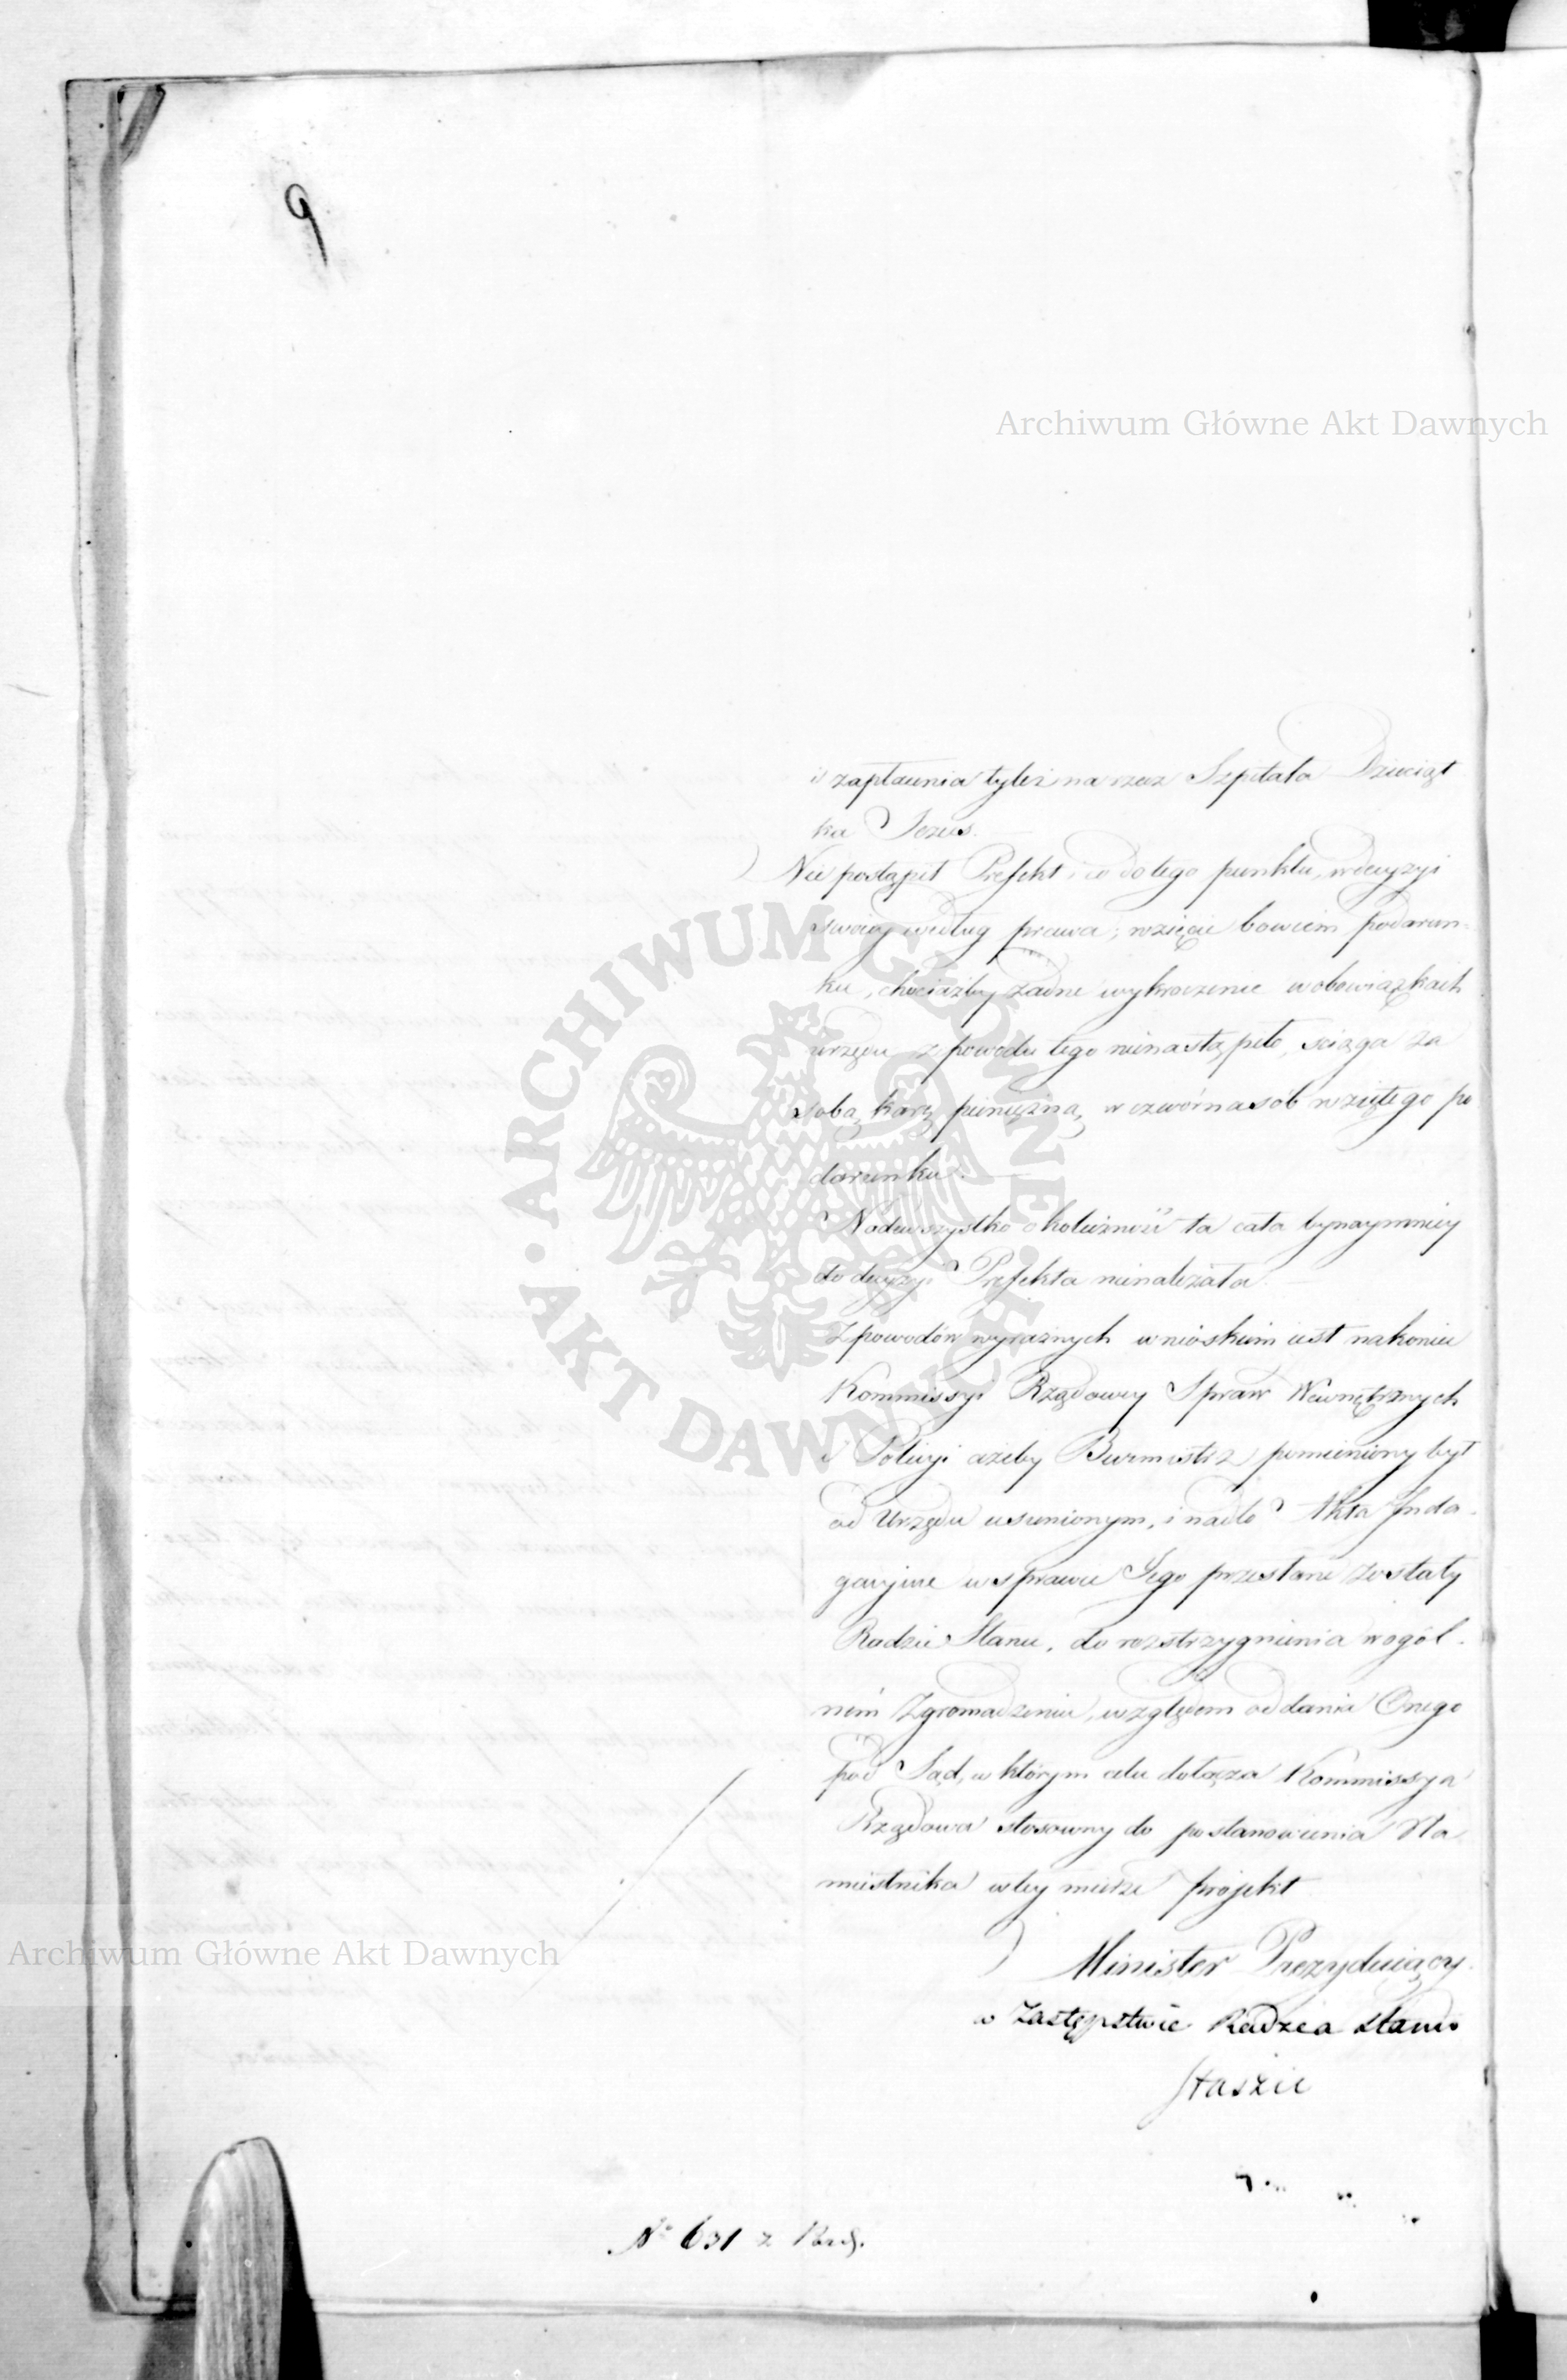 9
Archiwum Główne Akt Dawnych
i zapłacenia tyleż na rzecz Szpitala Dzieciąt
ka Jezus.
Nie postąpił Prefekt i co do tego punktu, w decyzyi
swoiey według prawa; wzięcie bowiem podarun=
ku, chociażby żadne wykroczenie w obowiązkach
urzędu z powodu tego nienastąpiło, sciąga za
sobą karę pieniężną w czwórnasób wziętego po
darunku.
Nadewszystko okoliczność ta cała bynaymniey
do decyzyi Prefekta nienależała.
Z powodów wyraznych wnioskiem iest nakoniec
Kommissyi Rządowey Spraw Wewnętrznych
i Policyi ażeby Burmistrz pomieniony był
od Urzędu usunionym, i nadto Akta Inda=
gacyine w sprawie Jego przesłane zostały
Radzie Stanu, do rozstrzygnienia w ogól=
ném Zgromadzeniu, względem oddania Onego
pod Sąd, w którym celu dołącza Kommissya
Rządowa stosowny do postanowienia Na
miestnika w tey mierze projekt
Minister Prezyduiący.
w Zastępstwie Radzca Stanu
Staszic
No 631 z
ARCHIWUM GŁÓWNE AKT DAWNYCH
Archiwum Główne Akt Dawnych